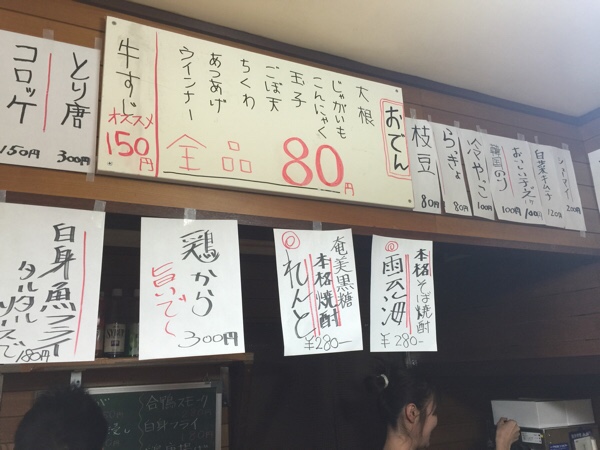 おでん
大根
じゃがいも
こんにゃく
玉子
ごぼ天
ちくわ
あつあげ
ウインナー
全品 80円
牛すじ
オススメ
150円
とり唐
300円
コロッケ
150円
枝豆
80円
らっきょ
80円
冷ややっこ
100円
韓国のり
100円
白菜キムチ
120円
200円
本格そば焼酎
雲海
¥280-
奄美黒糖
本格焼酎
れんと
¥280-
鶏から
旨いでく
300円
白身魚フライ
タルタル
ソースで
180円
合鴨スモーク
白身フライ